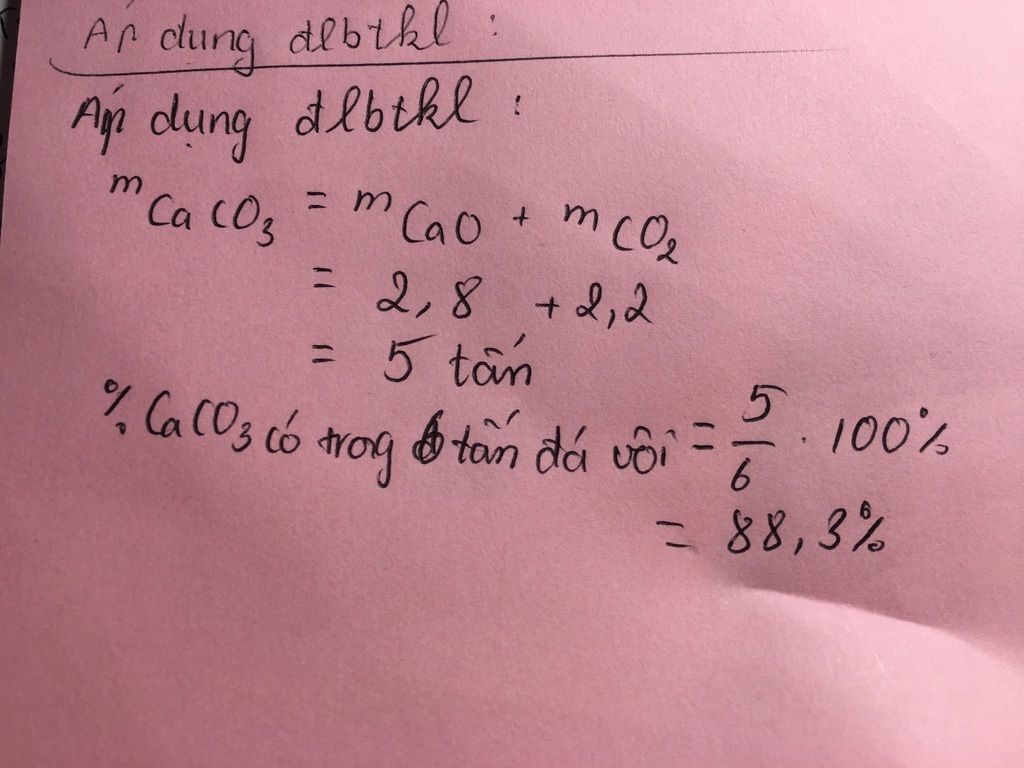 Áp dung đlbtkl :
Áp dụng đlbtkl :
mCaCO3 = mCaO + mCO2
= 2,8 + 2,2
= 5 tấn
% CaCO3 có trog 6 tấn đá vôi = 5/6 . 100%
= 88,3%